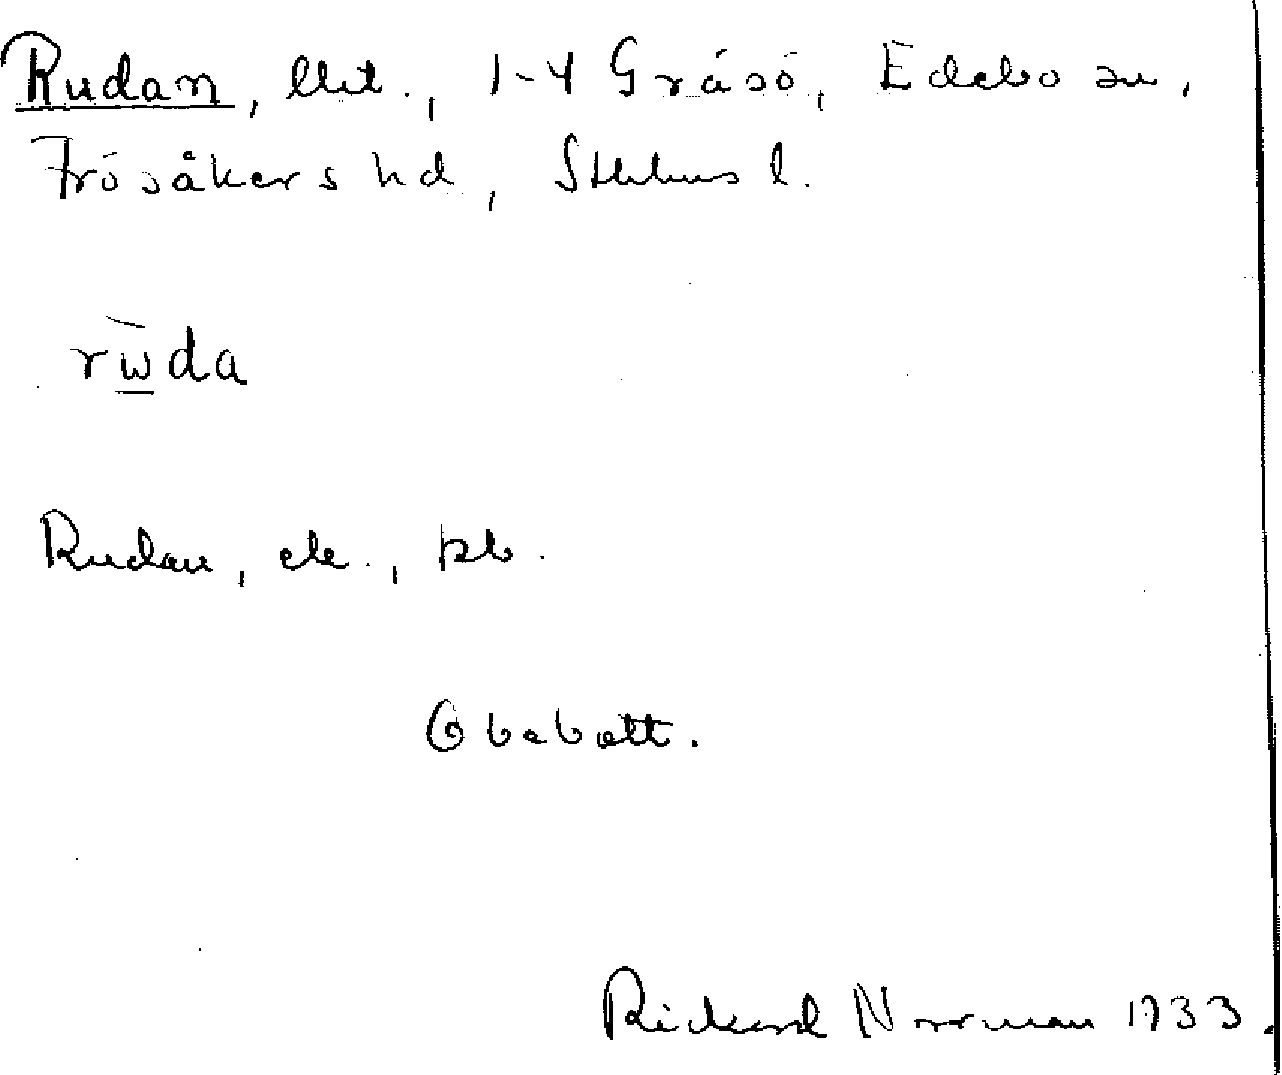 Rudan, lht., 1-4 Gräsö, Edebo sn,
Frösåkers hd, Sthlms l.
rẁda
Rudan, ek., kb.
Obebott.
Rickard Norrman 1933.